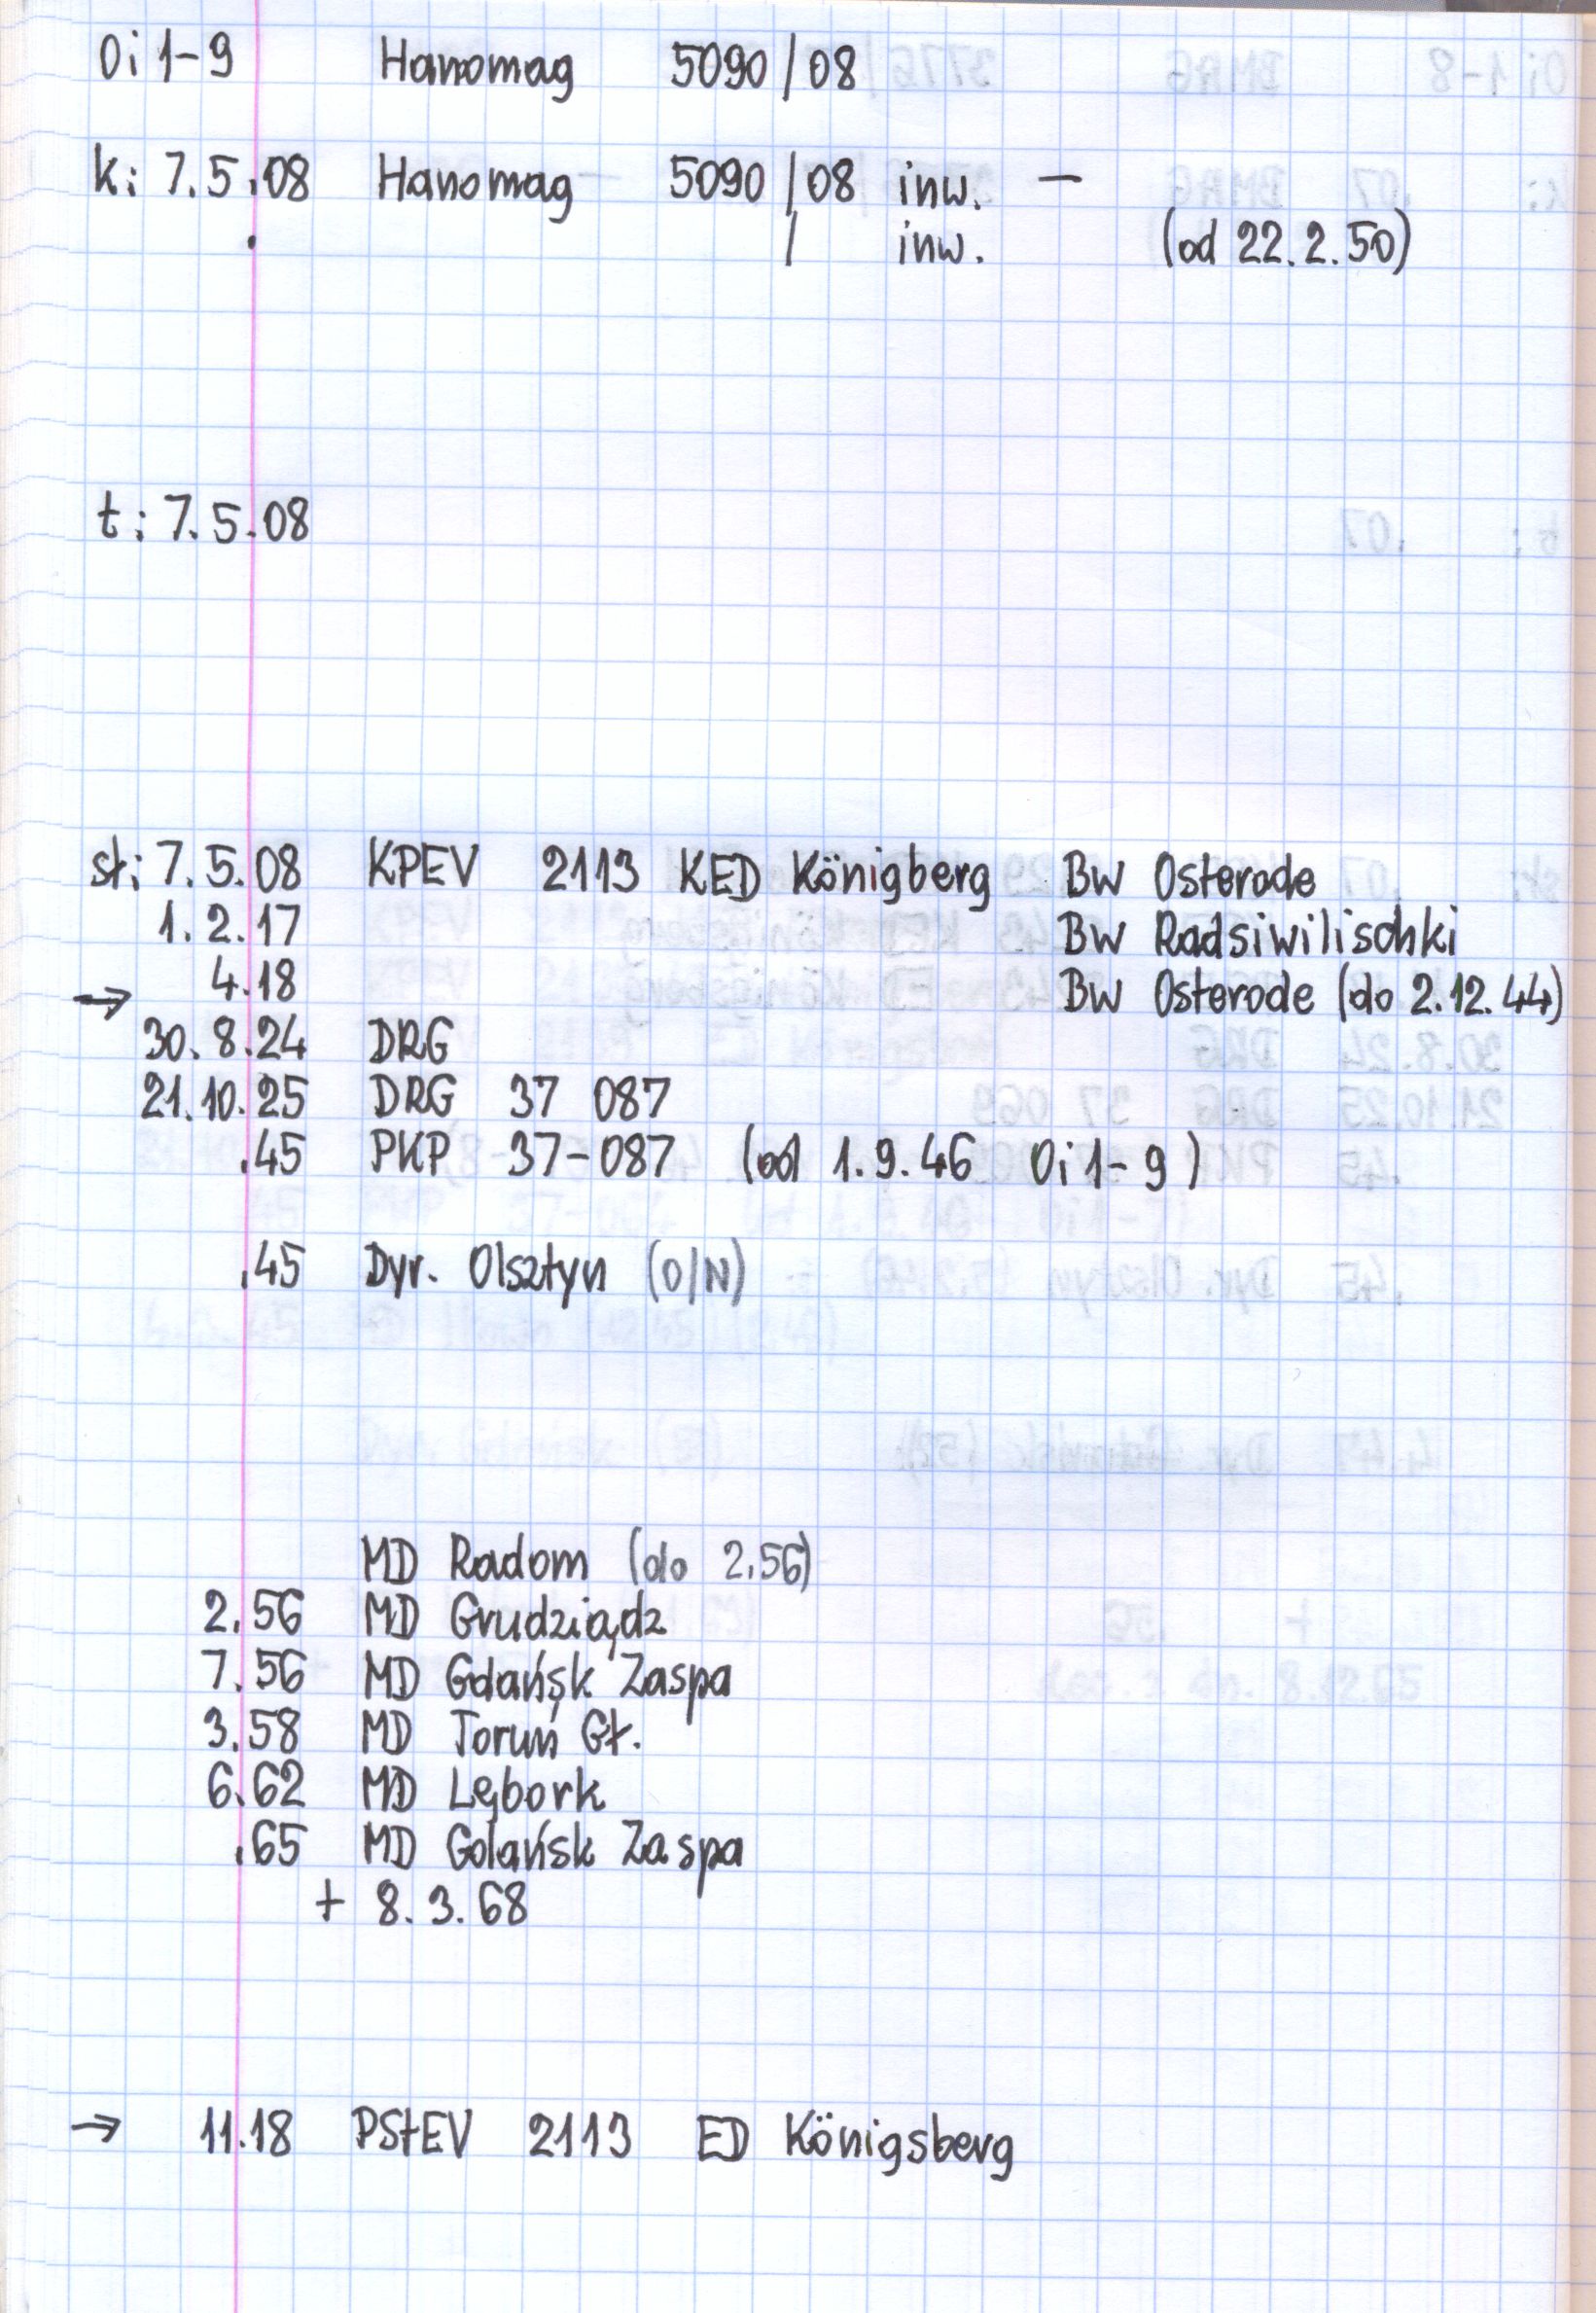 Oi 1-9 Hanomag 5090/08
k: 7.5.08 Hanomag 5090/08 inw. —
. / inw. (od 22.2.50)
t: 7.5.08
st: 7.5.08 KPEV 2113 KED Königberg Bw Osterode
1.2.17 Bw Radsiwilischki
4.18 Bw Osterode (do 2.12.44)
→
30.8.24 DRG
21.10.25 DRG 37 087
.45 PKP 37-087 (od 1.9.46 Oi 1-9)
.45 Dyr. Olsztyn (O/N)
MD Radom (do 2.56)
2.56 MD Grudziądz
7.56 MD Gdańsk Zaspa
3.58 MD Toruń Gł.
6.62 MD Lębork
.65 MD Gdańsk Zaspa
+ 8.3.68
→ 11.18 PStEV 2113 ED Königsberg